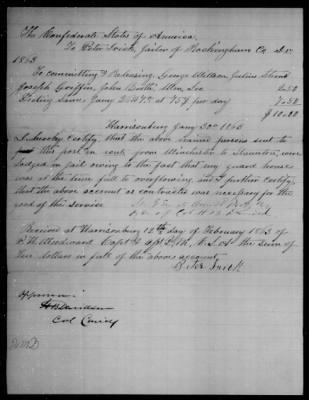 The Confederate States of America
To Peter Irick, Jailor of Rockingham Co. Dr.
1863
To committing & Releasing, George
Joseph Griffin, John Smith, 2.50
Dieting Same Jany at 75¢ per day 7.50
$10.00
Harrisonburg Jany 30th 1863
I hereby Certify, that the above named persons sent to
this post en route from Winchester to Staunton, were
lodged in jail owing to the fact that my guard house
was at the time full to overflowing and I further certify,
that the above account as contracted was necessary for the
good of the service
Received at Harrisonburg 12th day of February 1863 of
P. M. Woodward Capt & the sum of
Ten dollars in full of the above account
Peter Irick
Approved
Col